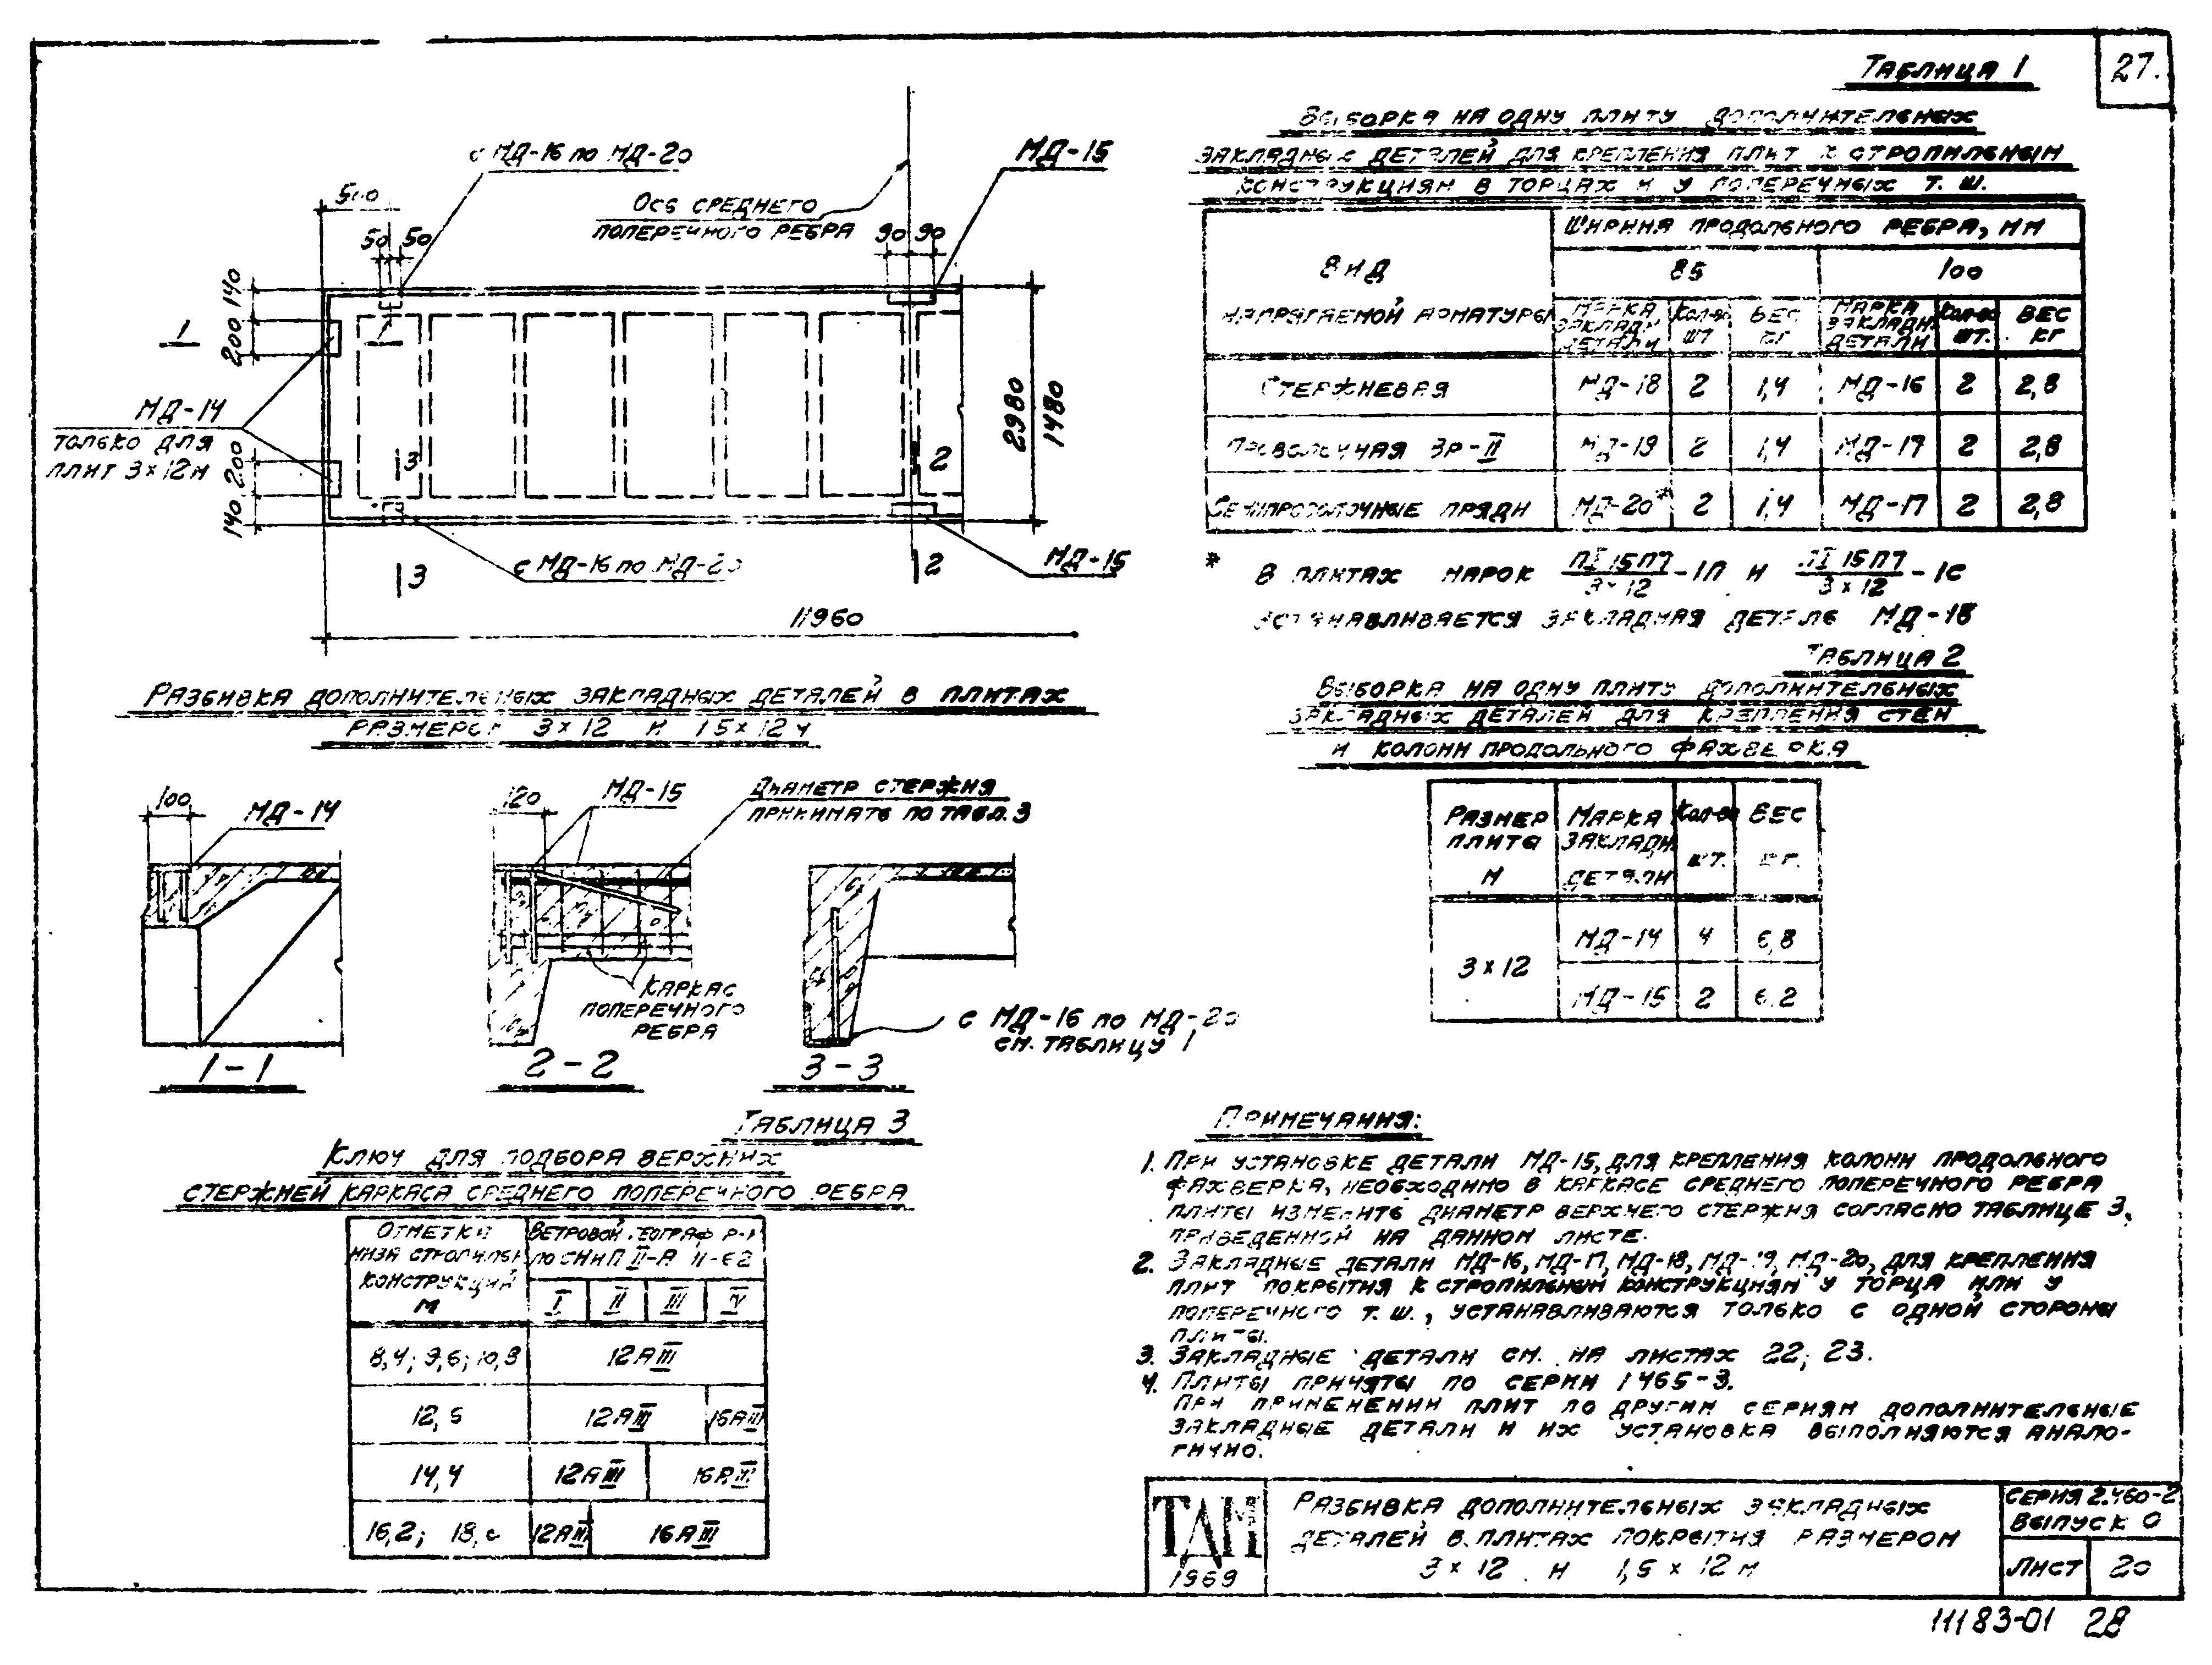 27.
Таблица 1
Выборка на одну плиту дополнительных
закладных деталей для крепления плит к стропильным
конструкциям в торцах и у поперечных т. ш.
Вид
напрягаемой арматуры
Ширина продольного ребра, мм
85
100
Марка закладн. детали
Кол-во шт
Вес кг
Марка закладн. детали
Кол-во шт.
Вес кг
Стержневая МД-18 2 1,4 МД-16 2 2,8
Проволочная Вр-II МД-19 2 1,4 МД-17 2 2,8
Семипроволочные пряди МД-20* 2 1,4 МД-17 2 2,8
* В плитах марок ПI 15П7/3×12 -1П и ПI 15П7/3×12 -1С
устанавливается закладная деталь МД-18
с МД-16 по МД-20
МД-15
Ось среднего
поперечного ребра
500
50 50
90 90
140
200
200
140
1
МД-14
только для
плит 3×12м
3
2
2980
1480
с МД-16 по МД-20
МД-15
3
2
11960
Разбивка дополнительных закладных деталей в плитах
размером 3×12 и 1,5×12 м
Таблица 2
Выборка на одну плиту дополнительных
закладных деталей для крепления стен
и колонн продольного фахверка
Размер плиты м
Марка закладн. детали
Кол-во шт.
Вес кг.
3×12
МД-14 4 6,8
МД-15 2 6,2
100
МД-14
1-1
120
МД-15
Диаметр стержня
принимать по табл. 3
Каркас
поперечного
ребра
2-2
с МД-16 по МД-20
см. таблицу 1
3-3
Таблица 3
Ключ для подбора верхних
стержней каркаса среднего поперечного ребра
Отметки
низа стропильн.
конструкций
м
Ветровой географ. р-н
по СНиП II-А 11-62
I II III IV
8,4; 9,6; 10,8 12АIII
12,6 12АIII 16АIII
14,4 12АIII 16АIII
16,2; 18,0 12АIII 16АIII
Примечания:
1. При установке детали МД-15, для крепления колонн продольного
фахверка, необходимо в каркасе среднего поперечного ребра
плиты изменить диаметр верхнего стержня согласно таблице 3,
приведенной на данном листе.
2. Закладные детали МД-16, МД-17, МД-18, МД-19, МД-20, для крепления
плит покрытия к стропильным конструкциям у торца или у
поперечного т. ш., устанавливаются только с одной стороны
плиты.
3. Закладные детали см. на листах 22; 23.
4. Плиты приняты по серии 1465-3.
При применении плит по другим сериям дополнительные
закладные детали и их установка выполняются анало-
гично.
ТДМ
1969
Разбивка дополнительных закладных
деталей в плитах покрытия размером
3×12 и 1,5×12 м
Серия 2.460-2
Выпуск 0
Лист 20
11183-01 28